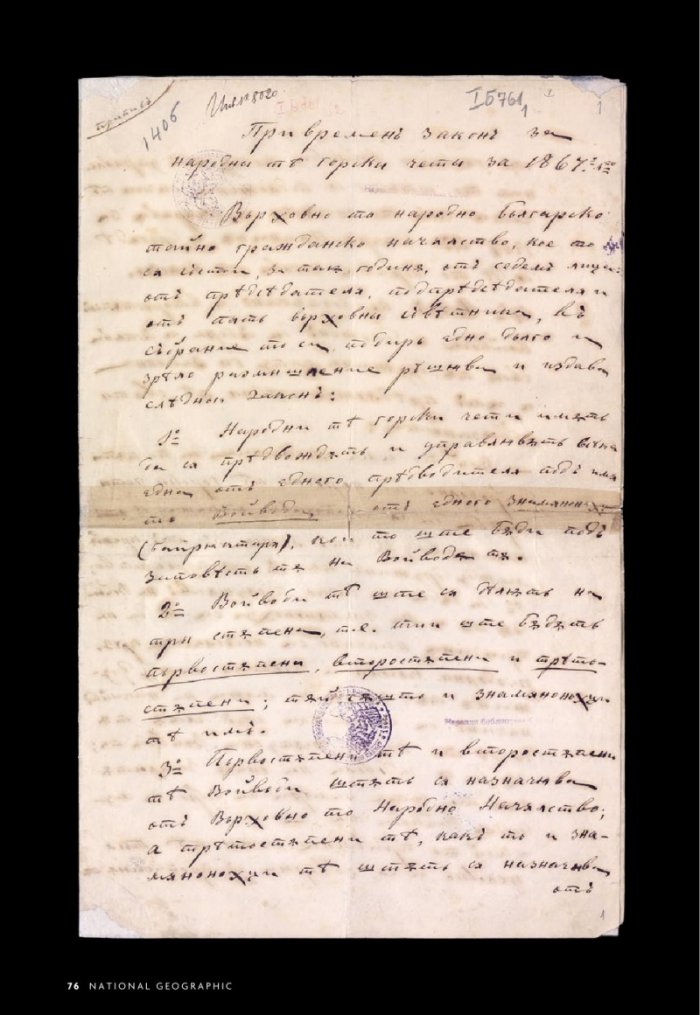 Инв. № 8020
1406
IБ 761
1
1
Привременъ законъ за
народни тѣ горски чети за 1867о лѣто
Върховно то народно българско
тайно гражданско началство, кое то
ся състои, за таѫ годинѫ, отъ седемь лица:
отъ прѣдсѣдателя, подпрѣдсѣдателя и
отъ пять върховни съвѣтници, въ
събрание то си, подиръ едно дълго и
зрѣло размишление рѣшява и издава
слѣдной законъ:
1о Народни тѣ горски чети имѫтъ
да ся прѣдвождѫтъ и управлявѫтъ всяка
една отъ едного прѣдводителя подъ имя
то Войвода и отъ едного знамяноносци
(байрактаря), кои то ште бѫди подъ
заповѣсть тѫ на Войводѫ тѫ.
2о Войводи тѣ ште ся дѣлѫтъ на
три стѫпени, т.е. тии ште бѫдѫтъ
първостѫпени, второстѫпени и трѣто-
стѫпени; тѫй сѫшто и знамяноносци
тѣ имъ.
3о Първостѫпени тѣ и второстѫпени
тѣ Войводи штѫтъ ся назначява
отъ Върховно то Народно Началство;
а трѣтостѫпени тѣ, какъ то и зна-
мяноносци тѣ штѫтъ ся назначява
отъ
1
76 NATIONAL GEOGRAPHIC